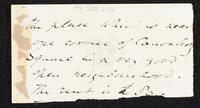 the place which is near
one corner of Connaught
Square in a very good
then neighbourhood.
The rent is £